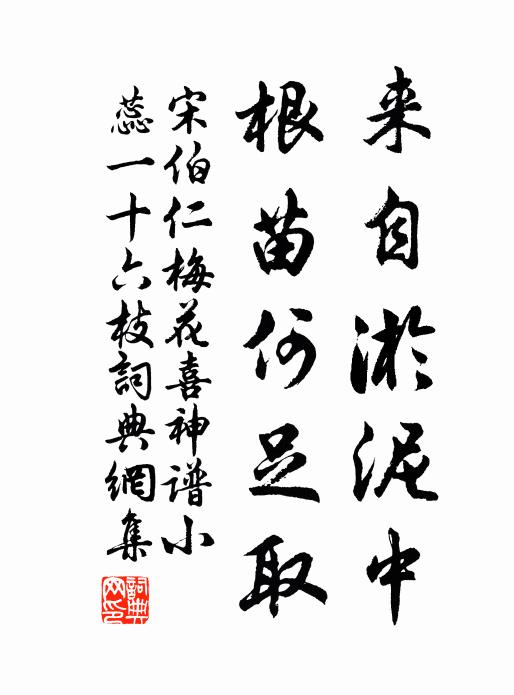 来自淤泥中
根苗何足取
宋伯仁梅花喜神谱小
蕊一十六枝詞典網集
詞典網印